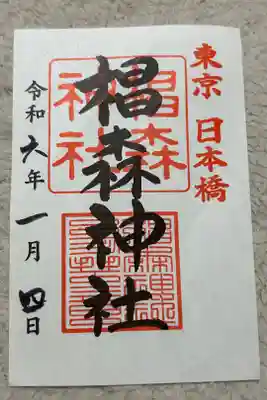 東京 日本橋
椙森神社
椙森
神社
令和六年 一月 四日